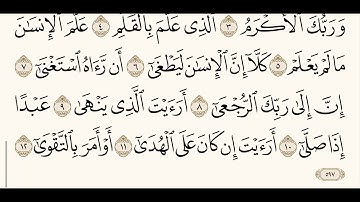 وَرَبُّكَ ٱلْأَكْرَمُ ٣ ٱلَّذِى عَلَّمَ بِٱلْقَلَمِ ٤ عَلَّمَ ٱلْإِنسَٰنَ
مَا لَمْ يَعْلَمْ ٥ كَلَّآ إِنَّ ٱلْإِنسَٰنَ لَيَطْغَىٰٓ ٦ أَن رَّءَاهُ ٱسْتَغْنَىٰٓ ٧
إِنَّ إِلَىٰ رَبِّكَ ٱلرُّجْعَىٰٓ ٨ أَرَءَيْتَ ٱلَّذِى يَنْهَىٰ ٩ عَبْدًا
إِذَا صَلَّىٰٓ ١٠ أَرَءَيْتَ إِن كَانَ عَلَى ٱلْهُدَىٰٓ ١١ أَوْ أَمَرَ بِٱلتَّقْوَىٰٓ ١٢
٥٩٧